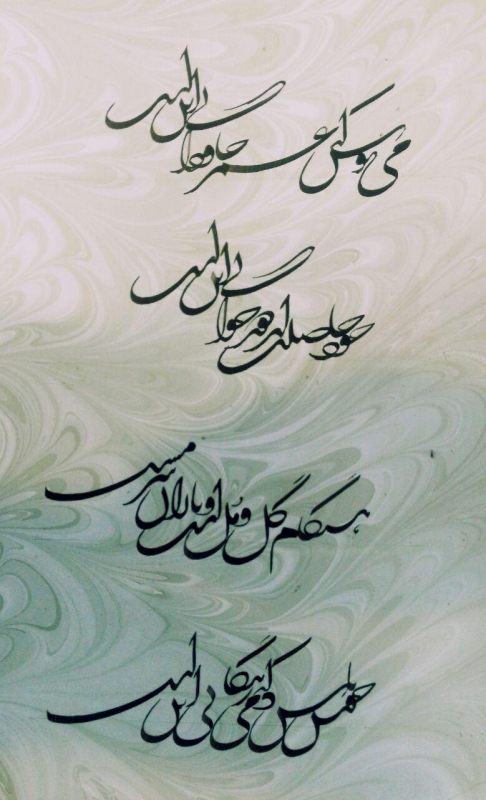 می نوش که عمر جاودانی این است
خود حاصلت از دور جوانی این است
هنگام گل و مل است و یاران سرمست
خوش باش دمی که زندگانی این است